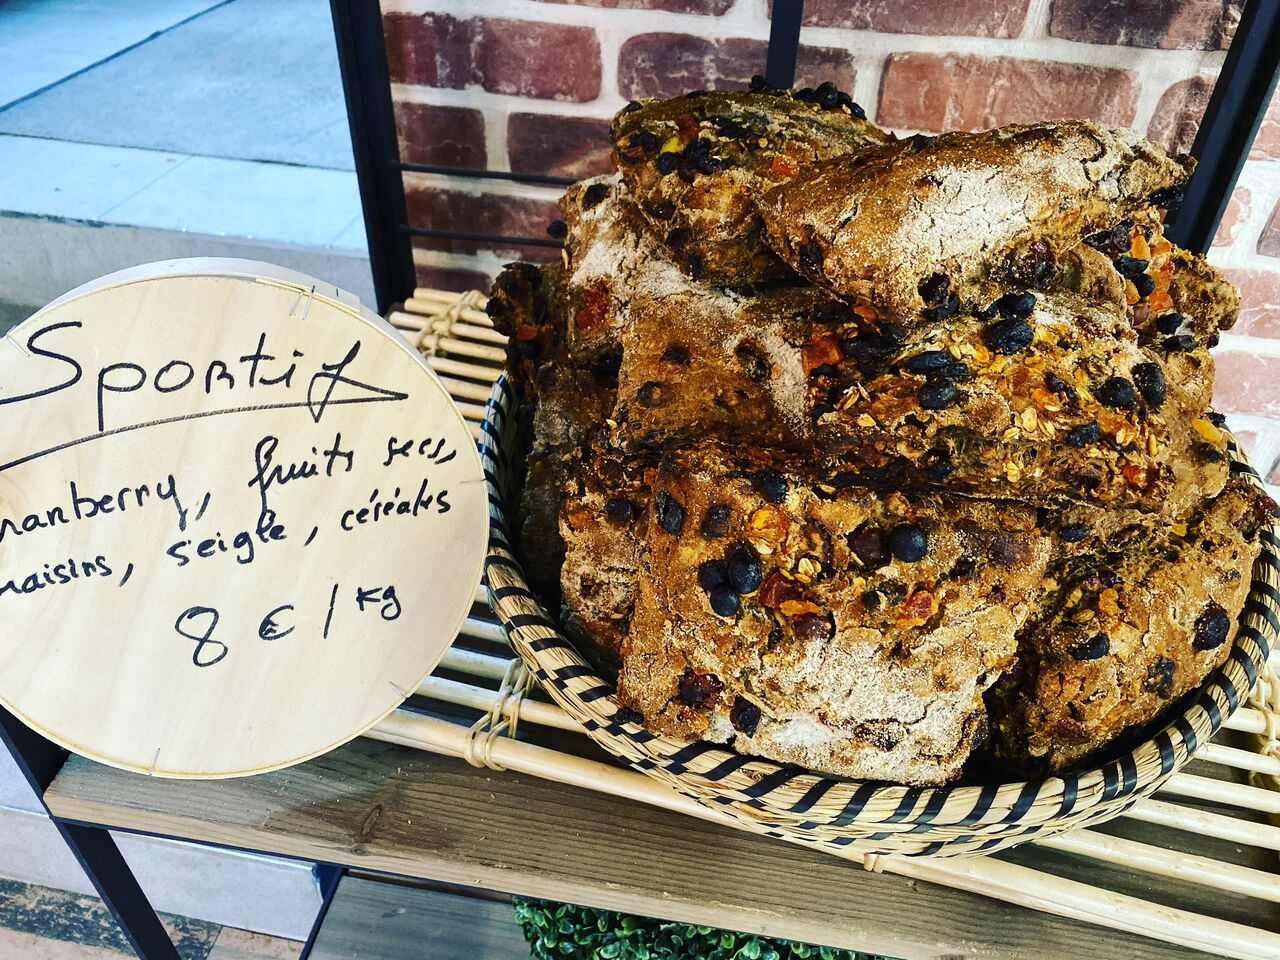 Sportif
ranberry, fruits secs,
raisins, seigle, céréales
8 € / kg